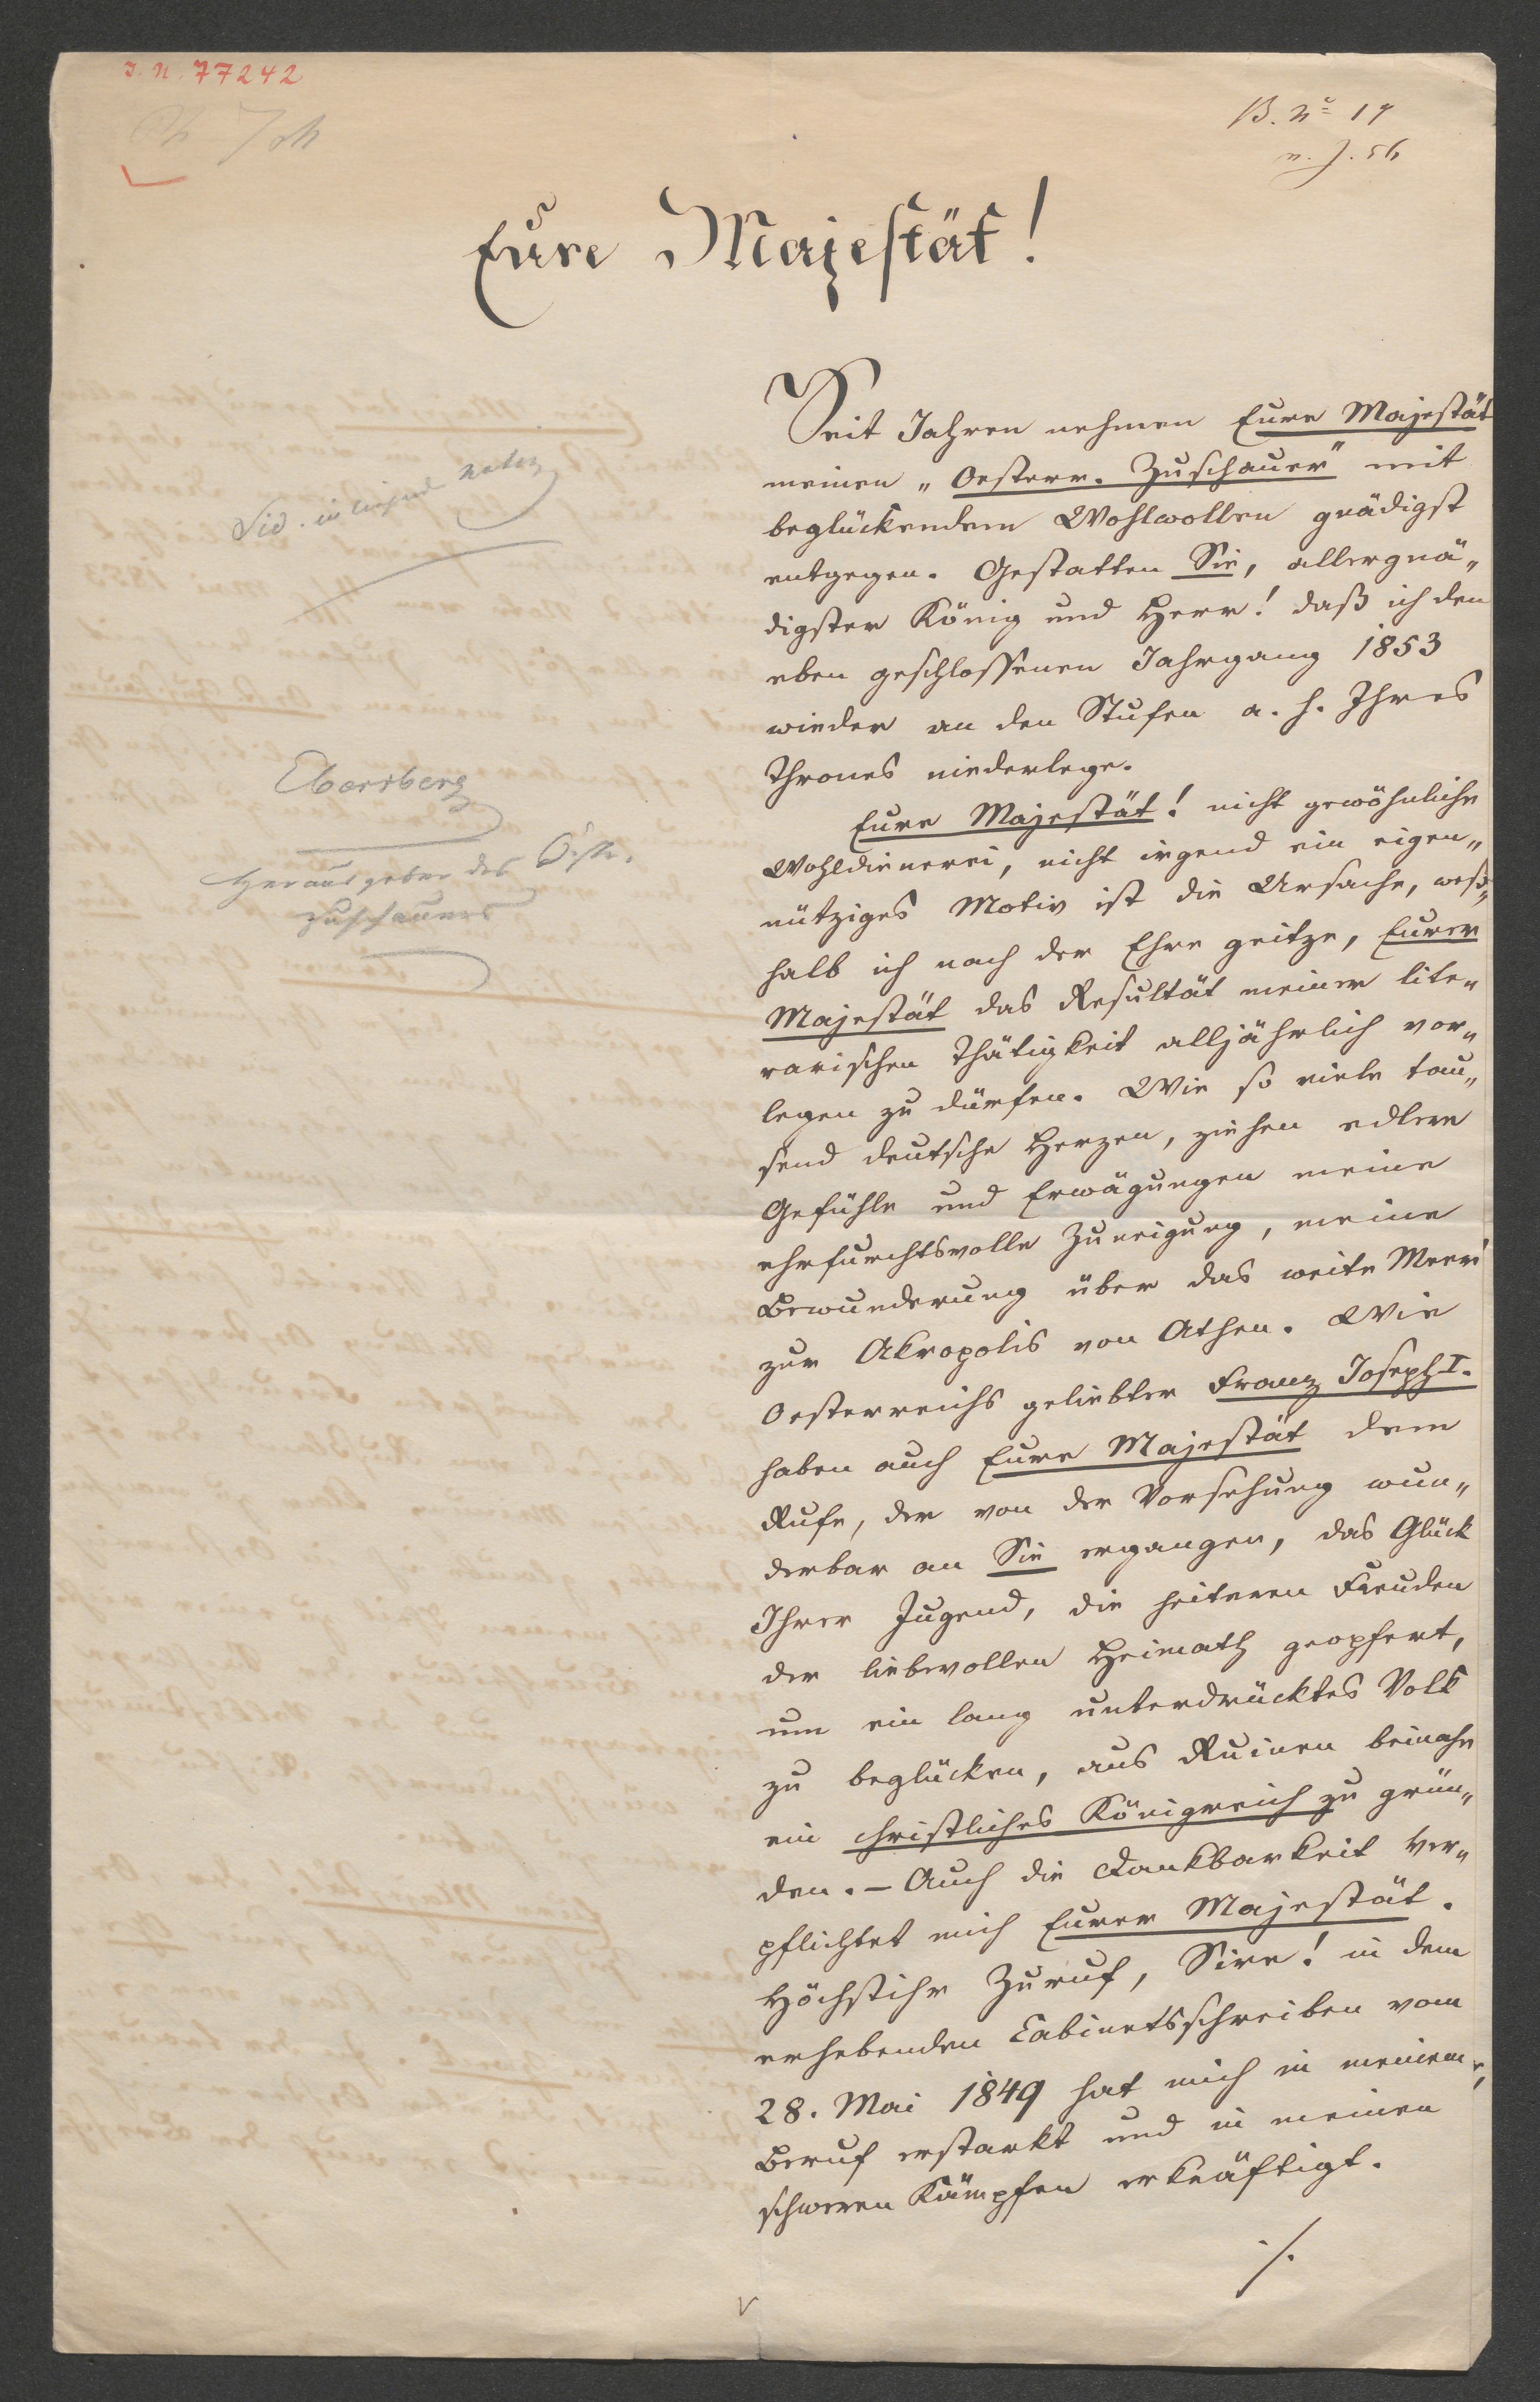 I. N. 77242
B. No 19
Eure Majestät!
Seit Jahren nehmen Eure Majestät
meinen „Oesterr. Zuschauer" mit
beglückendem Wohlwollen gnädigst
entgegen. Gestatten Sie, allergnä„
digster König und Herr! daß ich den
eben geschlossenen Jahrgang 1853
wieder an den Stufen a. h. Ihres
Thrones niederlege.
Eure Majestät! nicht gewöhnliche
Wohldienerei, nicht irgend ein eigen„
nütziges Motiv ist die Ursache, weß„
halb ich nach der Ehre geitze, Eurer
Majestät das Resultät meiner lite„
rarischen Thätigkeit alljährlich vor„
legen zu dürfen. Wie so viele tau„
send deutsche Herzen, ziehen edlere
Gefühle und Erwägungen meine
ehrfurchtsvolle Zuneigung, meine
Bewunderung über das weite Meer
zur Akropolis von Athen. Wie
Oesterreichs geliebter Franz Joseph I.
haben auch Eure Majestät dem
Rufe, der von der Vorsehung wun„
derbar an Sie ergangen, das Glück
Ihrer Jugend, die heiteren Freuden
der liebevollen Heimath geopfert,
um ein lang unterdrücktes Volk
zu beglücken, aus Ruinen beinahe
ein christliches Königreich zu grün„
den. – Auch die Dankbarkeit ver„
pflichtet mich Eurer Majestät.
Höchstihr Zuruf, Sire! in dem
erhebenden Cabinetsschreiben vom
28. Mai 1849 hat mich in meinem
Beruf erstarkt und in meinen
schweren Kämpfen erkräftigt.
./.
Ebersberg
Herausgeber des Östr.
Zuschauers